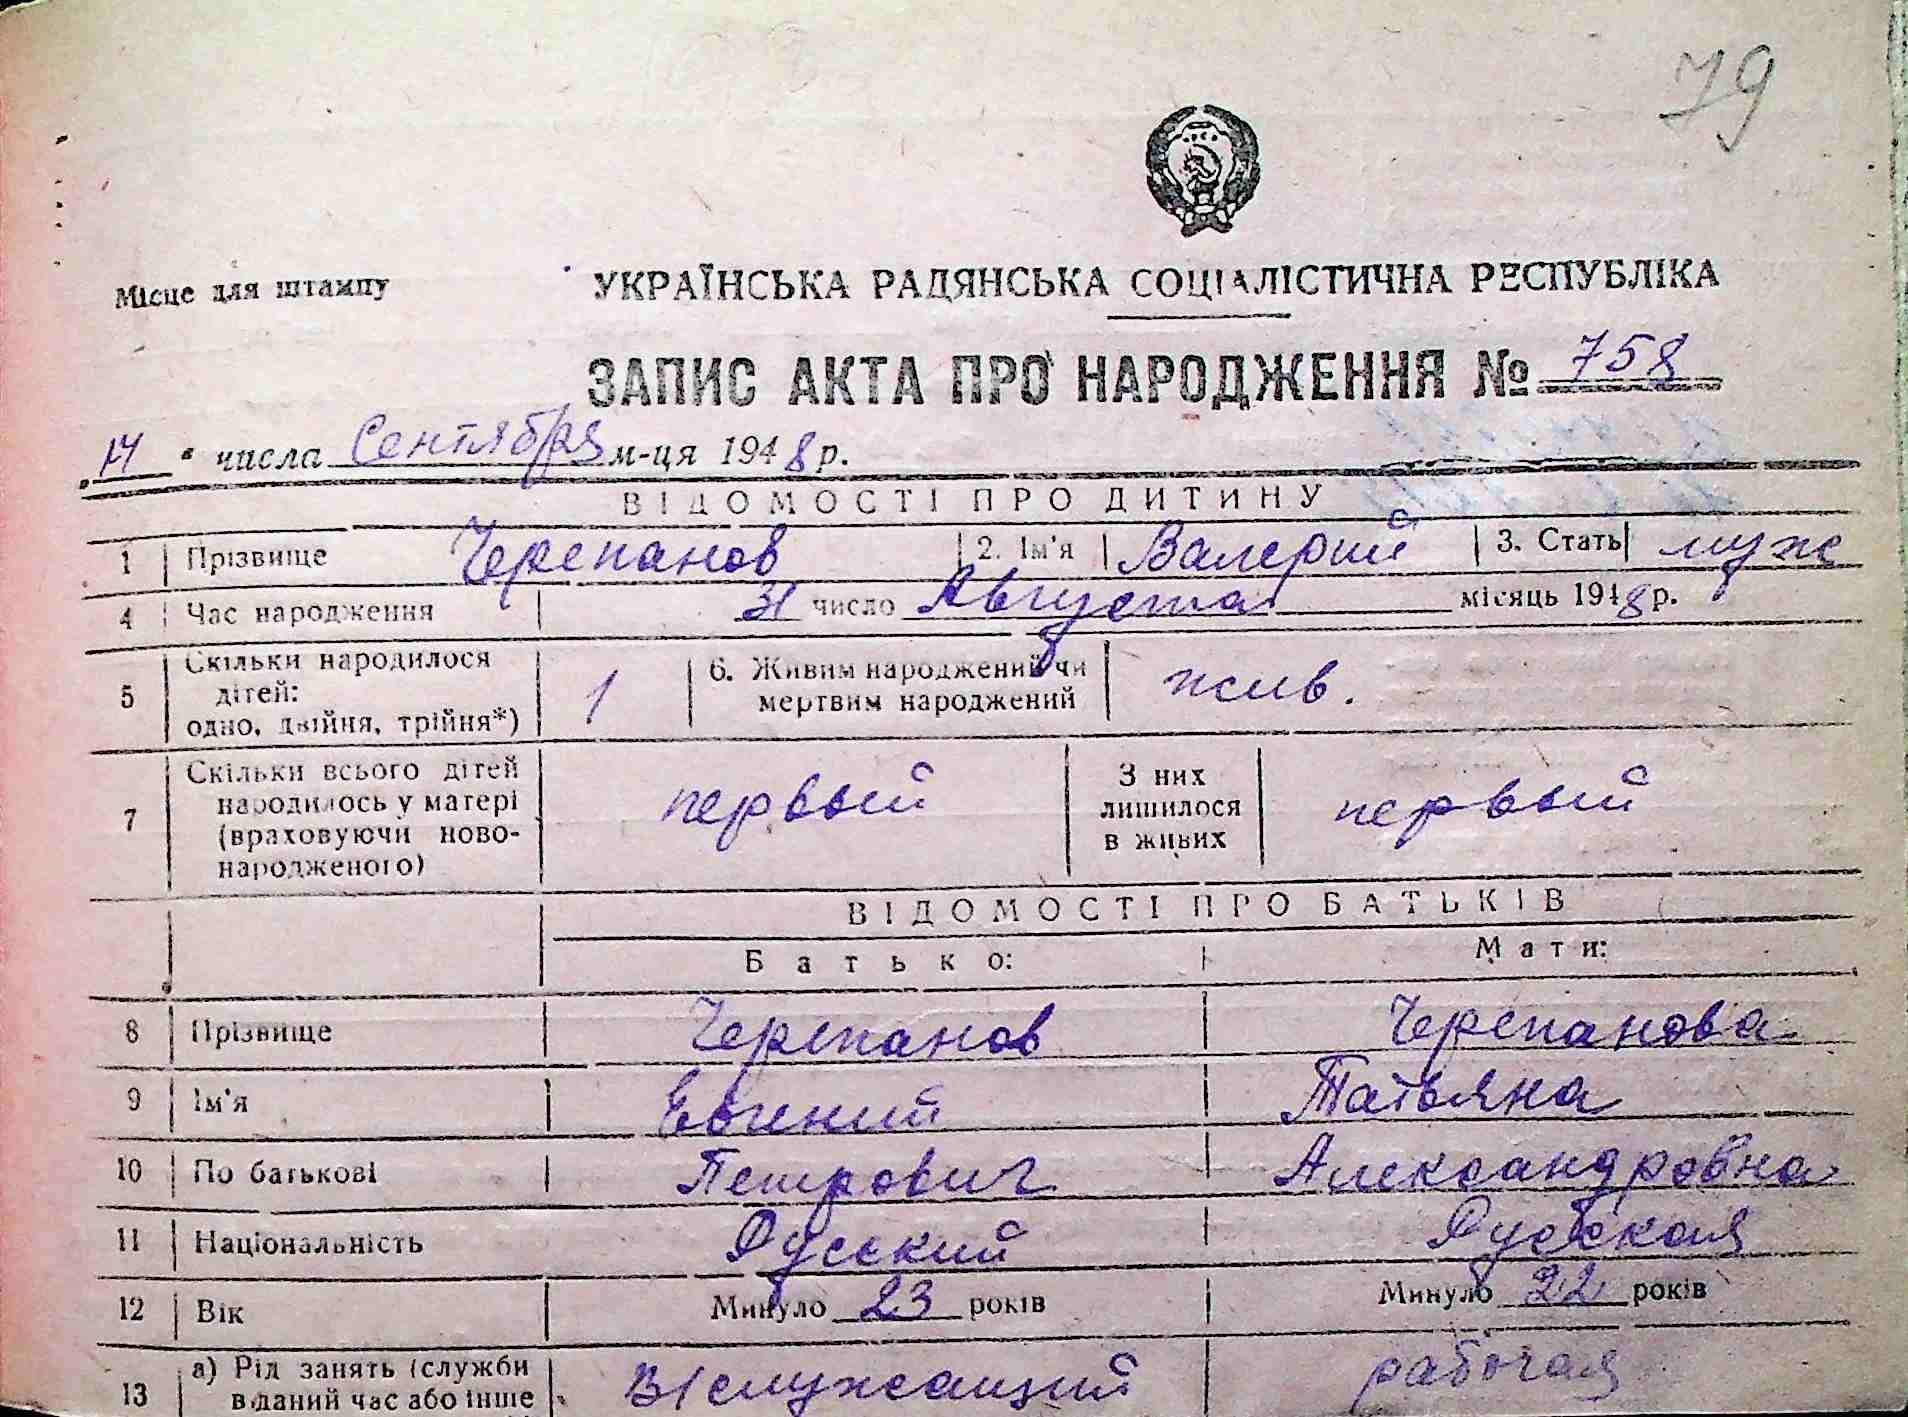 79
Місце для штампу
УКРАЇНСЬКА РАДЯНСЬКА СОЦІАЛІСТИЧНА РЕСПУБЛІКА
ЗАПИС АКТА ПРО НАРОДЖЕННЯ № 758
числа Сентября м-ця 1948 р.
ВІДОМОСТІ ПРО ДИТИНУ
1 Прізвище Черепанов 2. Ім'я Валерий 3. Стать муж
4 Час народження 31 число Августа місяць 1948 р.
5 Скільки народилося дітей: одно, двійня, трійня*) 1 6. Живим народжений чи мертвим народжений жив.
7 Скільки всього дітей народилось у матері (враховуючи новонародженого) первый З них лишилося в живих первый
ВІДОМОСТІ ПРО БАТЬКІВ
Батько: Мати:
8 Прізвище Черепанов Черепанова
9 Ім'я Евгений Татьяна
10 По батькові Петрович Александровна
11 Національність Русский Русская
12 Вік Минуло 23 років Минуло 22 років
13 а) Рід занять (служби в даний час або інше В/служащий рабочая